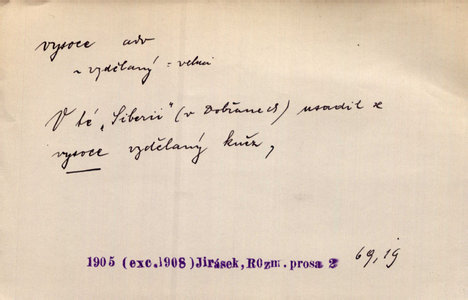 vysoce adv
~ vzdělaný = velmi
V té „Siberii" (v Dobřanech) usadil se
vysoce vzdělaný kněz,
1905 (exc.1908) Jirásek, Rozm. prosa 2 69,19